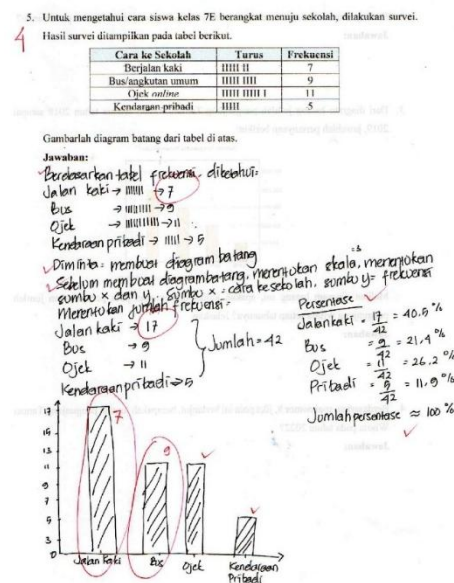 5. Untuk mengetahui cara siswa kelas 7E berangkat menuju sekolah, dilakukan survei.
4
Hasil survei ditampilkan pada tabel berikut.
Cara ke Sekolah Turus Frekuensi
Berjalan kaki IIIII II 7
Bus/angkutan umum IIIII IIII 9
Ojek online IIIII IIIII I 11
Kendaraan pribadi IIIII 5
Gambarlah diagram batang dari tabel di atas.
Jawaban:
Berdasarkan tabel frekuensi, diketahui:
Jalan kaki → IIIII II → 7
Bus → IIIII IIII → 9
Ojek → IIIII IIIII I → 11
Kendaraan pribadi → IIIII → 5
Diminta = membuat diagram batang
Sebelum membuat diagram batang, menentukan skala, menentukan
sumbu x dan y, sumbu x = cara ke sekolah, sumbu y = frekuensi
Menentukan jumlah frekuensi =
Jalan kaki → 17
Bus → 9
Ojek → 11
Kendaraan pribadi → 5
Jumlah = 42
Persentase
Jalan kaki = 17/42 = 40.5 %
Bus = 9/42 = 21.4 %
Ojek = 11/42 = 26.2 %
Pribadi = 5/42 = 11.9 %
Jumlah persentase ≈ 100 %
17
15
13
11
9
7
5
3
0
7
9
Jalan Kaki Bus Ojek Kendaraan
Pribadi